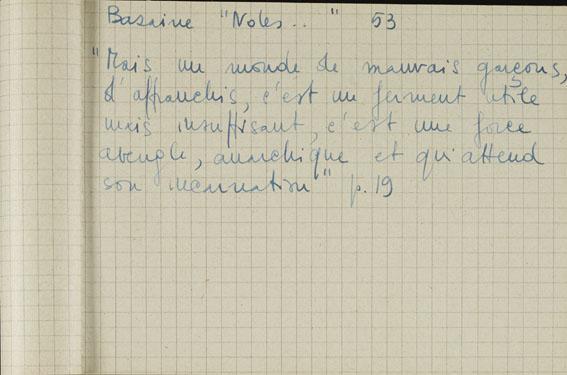 Bazaine "Notes.. " 53
"Mais un monde de mauvais garçons,
d'affranchis, c'est un ferment utile
mais insuffisant, c'est une force
aveugle, anarchique et qui attend
son incarnation" p.19